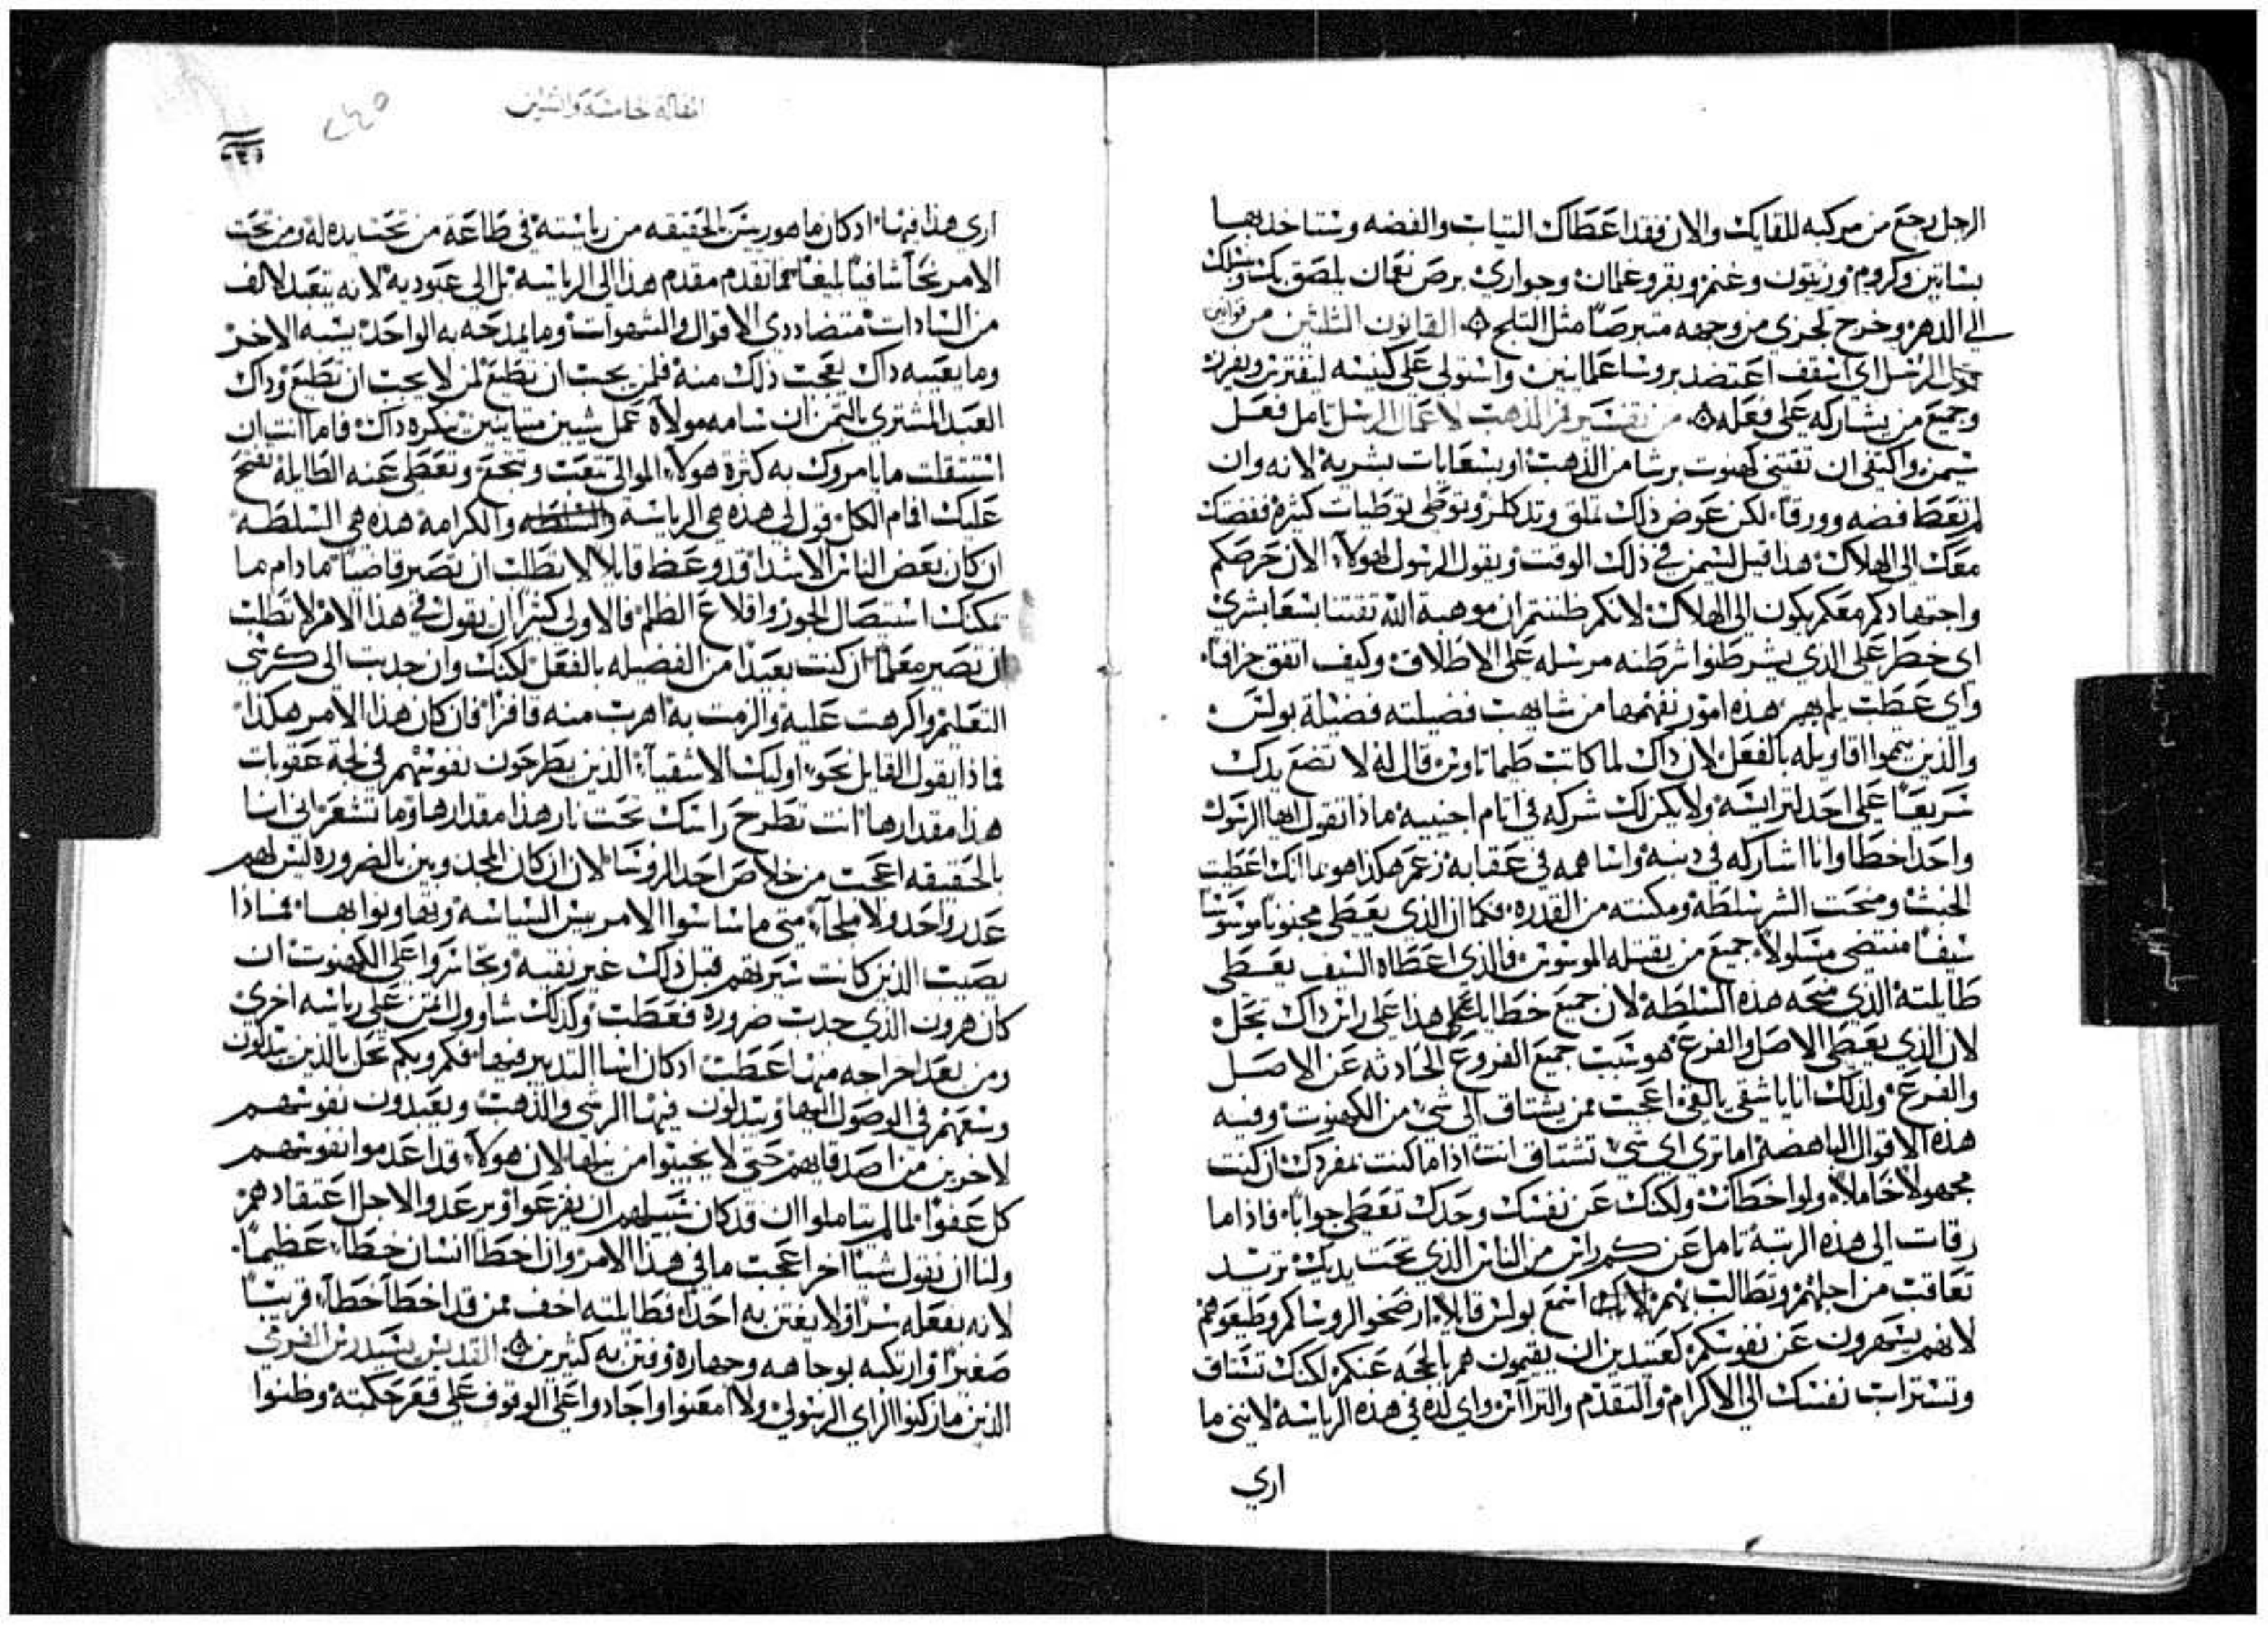 الرجل رجع من مركبه للقايك والان فقد اعطاك التياب والفضه وستاخد بها
بساتين وكروم وزيتون وغنم وبقر وغلمان وجواري برص نعمان يلصق بك ونسلك
الي الدهر وخرج لجزي من وجهه متبرصا مثل التلج القانون الثلثين من قوانين
الرسل اي اسقف اعتضد بروسا عالميين واستولي على كنيسه ليفترز ويفرز
وجميع من يشاركه على فعله من تفسير فم الذهب لاعمال الرسل تامل فعل
سيمن واكتفى ان تقتني كهنوت برشا من الذهب او بسعايات بشرية لانه وان
لم تعطا فضه وورقا لكن عوض ذلك تملق وتدكلز وتوطي توطيات كثيرة ففضتك
معك الى الهلاك هذا قيل لسيمن في ذلك الوقت ويقول الرسول لهولاء الان حرصكم
واجتهادكم معكم يكون الى الهلاك لانكم ظننتم ان موهبة الله تقتنا بسعا بشري
اى خطر على الذي يشرطنوا شرطنه مرسله على الاطلاق وكيف اتفق جزافا
واي عطب يلم بهم هذه امور نفهمها من شابهت فضيلته فضيلة بولس
والذين يتموا اقاويله بالفعل لان داك لما كاتب طيماتاوس قال له لا تضع يدك
سريعا على احد لتراسه ولا يكن لك شركه في اتام اجنبيه ماذا تقول ايها الرسول
واحد اخطا وانا اشاركه في دينه واساهمه في عقابه زعم هكذا هو بما انك اعطيت
الخبث ومنحت الشر سلطه ومكنته من القدره فكما ان الذي يعطي مجنونا موسوسا
سيفا منتضى مسلولا جميع من يقتله الموسوس فالذي اعطاه السيف يعطى
طايلته الذي منحه هذه السلطه لان جميع خطايا هذا على راس داك تحل
لان الذي يعطي الاصل والفرع هو سبب جميع الفروع الحادثه عن الاصل
والفرع ولذلك انا يا شقي بالغي اعجب ممن يشتاق الي شي من الكهنوت وفيه
هذه الاقوال الباهضه اما تري اي شي تشتاق انت اذا ما كنت بمفردك ان كنت
مجهولا خاملا ولو اخطات ولكنك عن نفسك وحدك تعطي جوابا فاذا ما
رقات الى هذه الرتبة تامل عن كم راس من الناس الذي تحت يدك ترشد
تعاقب من اجلهم وتطالب بهم اسمع بولس قايلا ارضخوا لروساكم وطيعوهم
لانهم يسهرون عن نفوسكم كعتيدين ان يقيمون هم بالحجه عنكم لكنك تشتاق
وتستراب نفسك الي الاكرام والتقدم والتراأس واي لذه في هذه الرياسة لانني ما
اري
المقالة خامسة والثلثين
ارى هذا فيها ادكان ما هو ريس بالحقيقه من رياسته في طاعة من تحت يده له ومن تحت
الامر نحا شافيا لمبغا مما تقدم مقدم هذا الى الرياسه بل الى عبوديه لانه يتعبد لالف
من السادات متضاددي الاقوال والشهوات وما يمدحه به الواحد يسبه الاخر
وما يعيبه داك يعجب ذلك منه فلمن يجب ان تطيع لمن لا يجب ان تطيع وداك
العبد المشتري بالتمن ان سامه مولاه عمل شيين متباينين ينكره داك فاما انت ان
استثقلت ما يامروك به كثرة هولاء الموالي تتعب وتتجع وتعطي عنه الطايلة تفتح
عليك افام الكل قول لي هذه هي الرياسه والكرامة هذه هي السلطه
ان كان بعض الناس الاشدا قد وعظ قايلا لا تطلب ان تصير قاضيا ما دام ما
يمكنك استيصال الجور واقلاع الظلم فالاولى كثيرا ان يقول في هذا الامر لا تطلب
ان تصير معلما ان كنت بعيدا من الفضيله بالفعل لكنك وان جدبت الى كرسي
التعليم واكرهت عليه والزمت به اهرب منه قافزا فان كان هذا الامر هكذا
فماذا يقول القايل نحو اوليك الاشقياء الذين يطرحون نفوسهم في لجة عقوبات
هذا مقدارها انت تطرح راسك تحت نار هذا مقدارها وما تشعر اني انا
بالحقيقه اعجب من خلاص احد الروسا لان ان كان المجدوبين بالضروره ليس لهم
عدر واحد ولا ملجا متى ما ساسوا الامر بيس السياسه وتهاونوا بها فماذا
يصيب الذين كانت سيرتهم قبل ذلك غير نقيه وتجاسروا على الكهنوت ان
كان هرون الذي جدب ضروره فعطب وكذلك شاوول ائتمن على رياسه اخرى
ومن بعد اخراجه منها عطب ادكان اسا التدبير فيها فكم وبكم تحل بالذين يبدلون
وسعهم في الوصول اليها ويبدلون فيها الرشى والذهب ويعبدون نفوسهم
لاخرين من اصدقايهم حتى لا يخيبوا من نيلها لان هولاء قد اعدموا نفوسهم
كل عفوا لما لم يتاملوا ان قد كان سبيلهم ان يفزعوا ويرعدوا لاجل اعتقادهم
ولنا ان نقول شيا اخر اعجب ما في هذا الامر وان اخطا انسان خطاء عظيما
لانه يفعله سرا ولا يفتن به احدا فطايلته اخف ممن قد اخطا خطاء قريبا
صغيرا وارتكبه بوجاهه وجهاره وفتن به كثيرين القديس يسيدرس الفرمي
الذين ما زكنوا الراي الرسولي ولا امعنوا واجادوا على الوقوف على قعر حكمته وظنوا